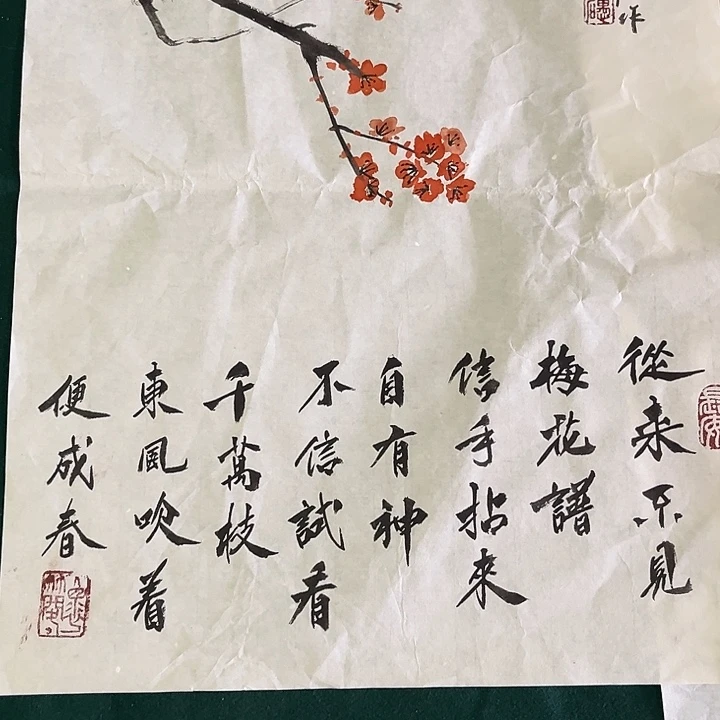 作
從来不見
梅花譜
信手拈來
自有神
不信試看
千萬枝
東風吹着
便成春